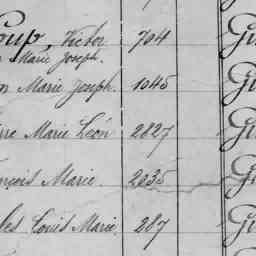 oup, Victor 704
Marie Joseph.
Marie Joseph. 1045
rre Marie Léon 2827
nçois Marie 2035
les Louis Marie. 287